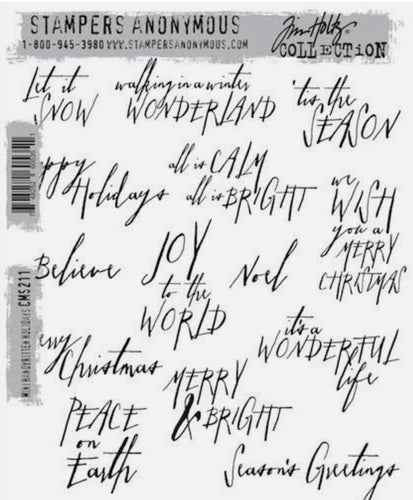 STAMPERS ANONYMOUS
1-800-945-3980 WWW.STAMPERSANONYMOUS.COM
Tim Holtz
COLLECTION
Let it
SNOW
walking in a winter
WONDERLAND
'tis the
SEASON
ppy
Holidays
all is CALM
all is BRIGHT
we
WISH
you a
MERRY
CHRISTMAS
Believe
JOY
to the
WORLD
Noel
erry
Christmas
MERRY
& BRIGHT
it's a
WONDERFUL
life
PEACE
on
Earth
Season's Greetings
MINI HANDWRITTEN HOLIDAYS CMS211